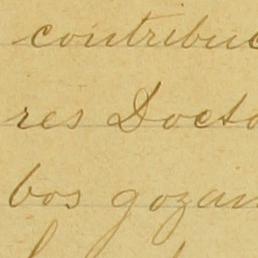 contribuc
res Docto
bos gozan